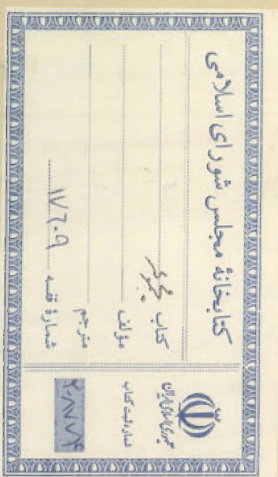 کتابخانهٔ مجلس شورای اسلامی
کتاب
مؤلف
مترجم
شمارهٔ قفسه ۱۷۶۰۹
جمهوری اسلامی ایران
شماره ثبت کتاب